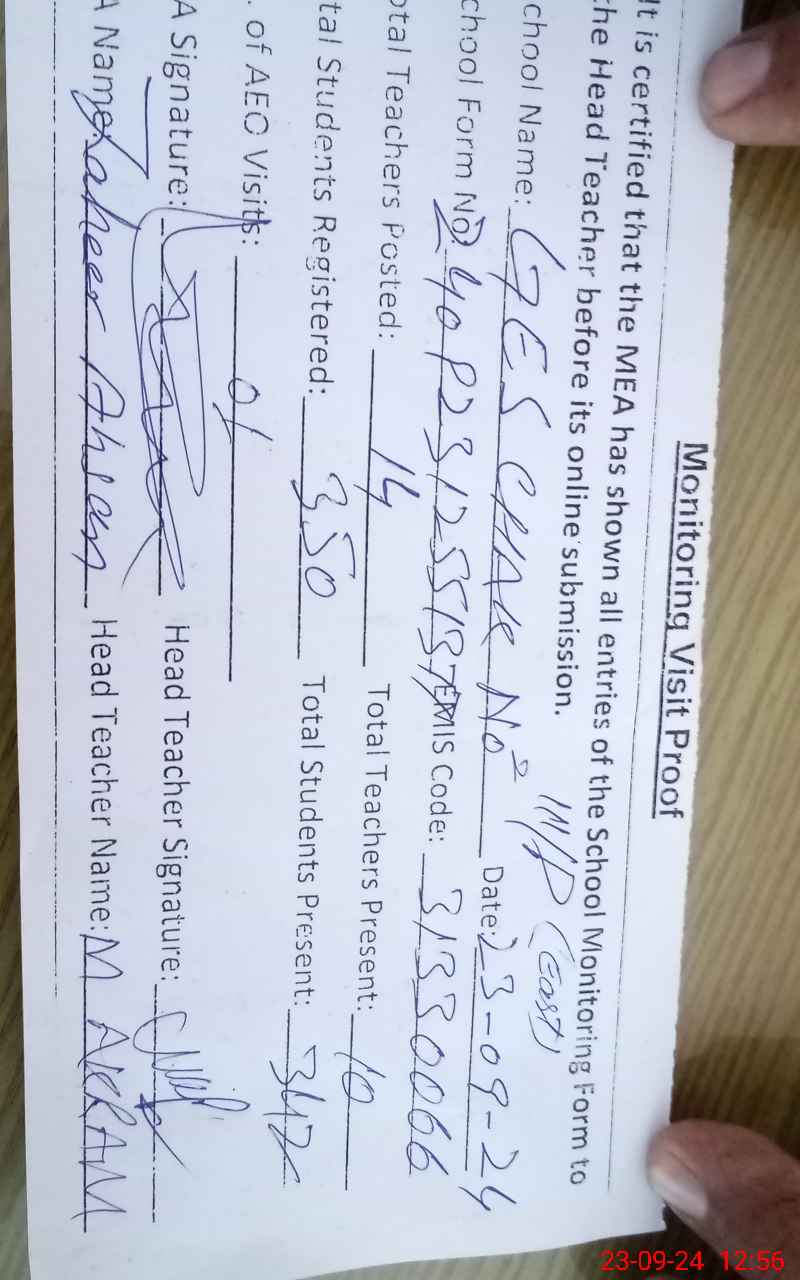 Monitoring Visit Proof
It is certified that the MEA has shown all entries of the School Monitoring Form to
the Head Teacher before its online submission.
chool Name: GES CHAK No 2 11/P (East) Date: 23-09-24
chool Form No. EMIS Code: 31330066
otal Teachers Posted: 14 Total Teachers Present: 10
tal Students Registered: 350 Total Students Present: 342
. of AEO Visits: 01
A Signature: Head Teacher Signature:
A Name: Zaheer Ahsan Head Teacher Name: M AKRAM
23-09-24 12:56